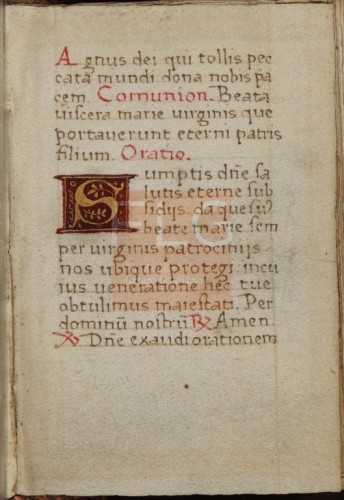 Agnus dei qui tollis pec
cata mundi dona nobis pa
cem. Comunion. Beata
viscera marie virginis que
portaverunt eterni patris
filium. Oratio.
Sumptis dñe sa
lutis eterne sub
sidijs. da quesũ
beate marie sem
per virginis patrocinijs
nos ubique protegi. incu
ius veneratione hec tue
obtulimus maiestati. Per
dominũ nostrũ ℟ Amen
℣ Dñe exaudi orationem